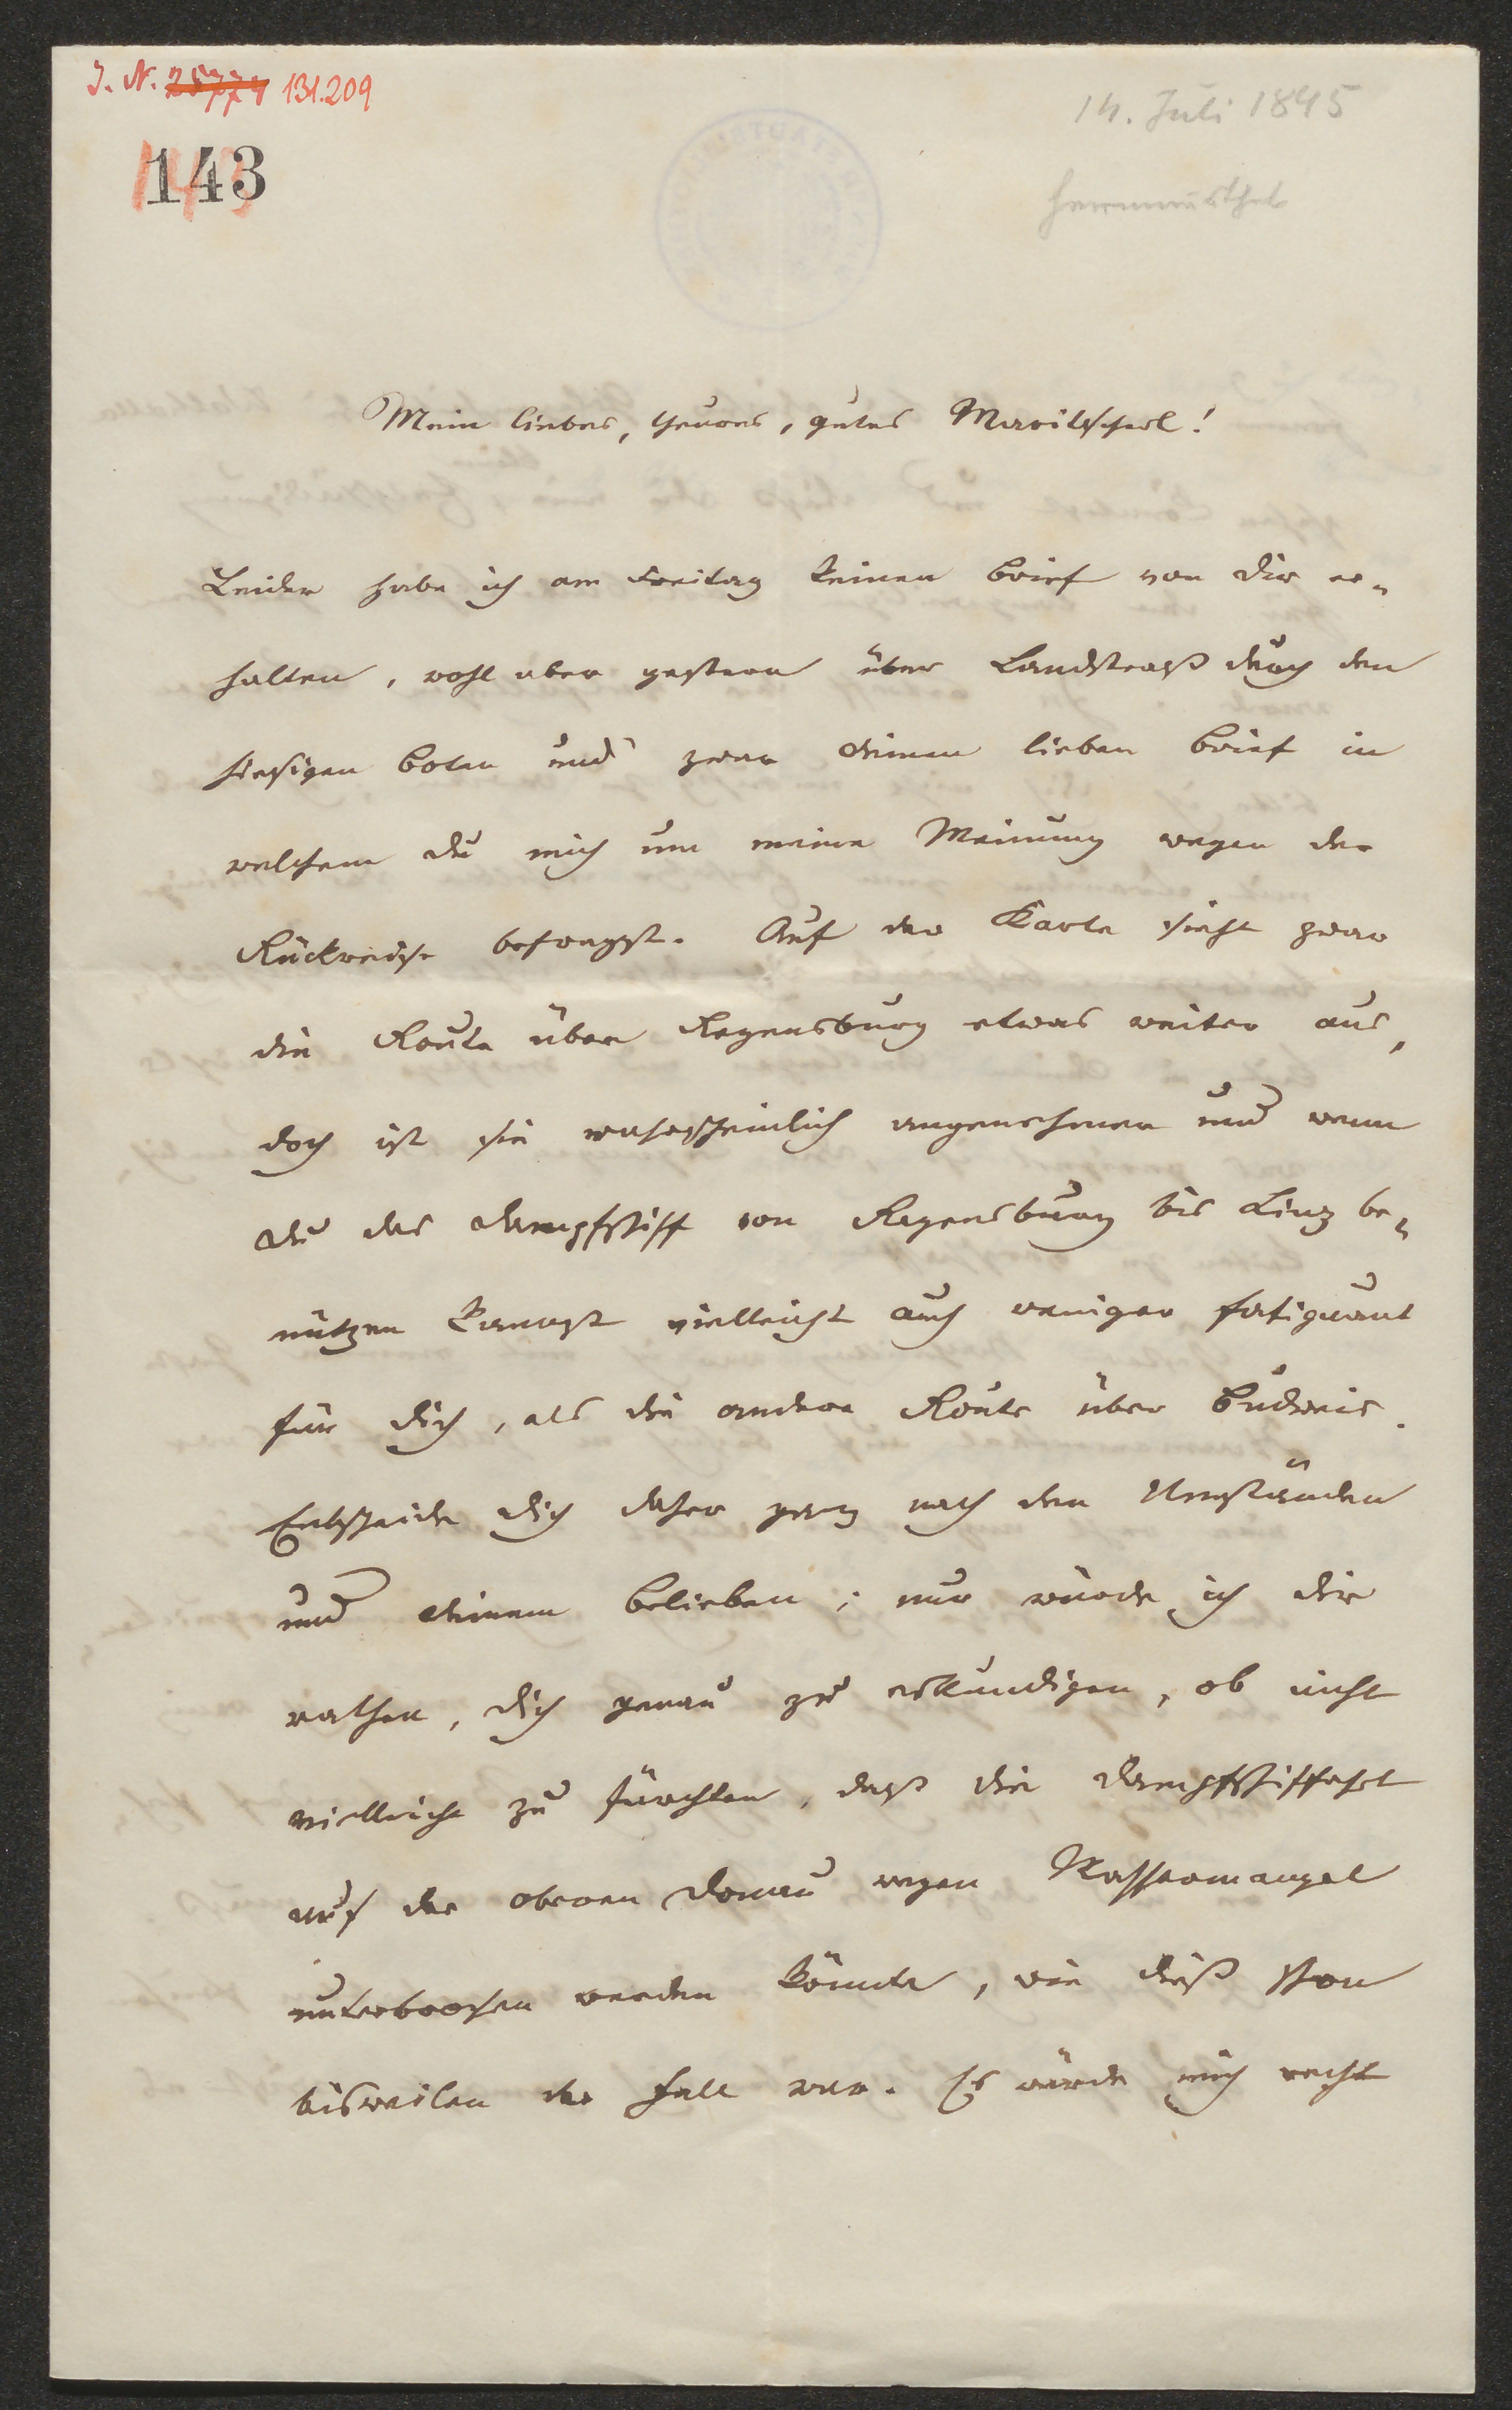 J. N. 25774 131.209
143
14. Juli 1845
Mein liebes, theures, gutes Mariltscherl!
Leider habe ich am Freitag keinen Brief von dir er-
halten, wohl aber gestern über Landstraß durch den
hiesigen Boten und zwar deinen lieben Brief in
welchem du mich um meine Meinung wegen der
Rückreise befragst. Auf der Karte sieht zwar
die Route über Regensburg etwas weiter aus,
doch ist sie wahrscheinlich angenehmer und wenn
du das Dampfschiff von Regensburg bis Linz be-
nützen kannst vielleicht auch weniger fatiguant
für dich, als die andere Route über Budweis.
Entscheide dich daher ganz nach den Umständen
und deinem Belieben; nur würde ich dir
rathen, dich genau zu erkundigen, ob nicht
vielleicht zu fürchten, daß die Dampfschiffahrt
auf der oberen Donau wegen Wassermangel
unterbrochen werden könnte, wie dieß schon
bisweilen der Fall war. Es würde mich recht